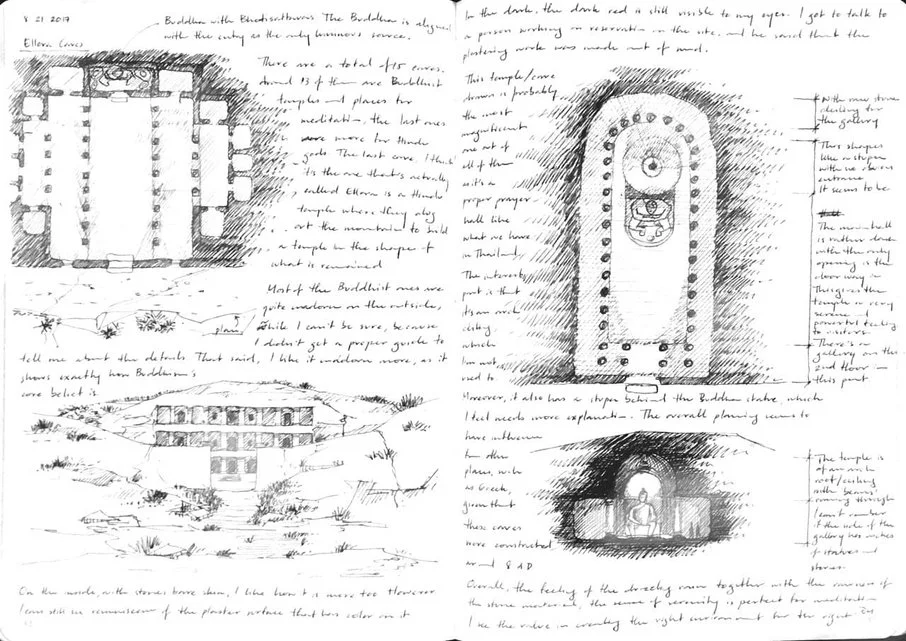 8 21 2017
Ellora Caves
Buddha with Bhodisatthavas The Buddha is aligned
with the entry as the only luminous source.
There are a total of 15 caves.
Around 13 of them are Buddhist
temples and places for
meditation, the last ones
were more for Hindu
gods The last cave, I think
it's the one that's actually
called Ellora is a Hindu
temple where they dug
out the mountain to build
a temple in the shape of
what is remained
Most of the Buddhist ones are
quite modern on the outside,
While I can't be sure, because
I didn't get a proper guide to
plan
tell me about the details That said, I like it modern more, as it
shows exactly how Buddhism's
core belief is.
On the inside, with stones bare skin, I like how it is more too However
I can still see reminiscence of the plaster surface that has color on it
In the dark, the dark red is still visible to my eyes. I got to talk to
a person working on reservation in the site, and he said that the
plastering work was made out of mud.
This temple/cave
drawn is probably
the most
magnificent
one out of
all of them
as it's a
proper prayer
hall like
what we have
in Thailand.
The interesting
part is that
it's an arch
ceiling
which
I'm not
used to.
Moreover, it also has a stupa behind the Buddha statue, which
I feel needs more explanation. The overall planning seems to
have influence
from other
places, such
as Greek,
given that
these caves
were constructed
around 8 AD
Overall, the feeling of the room together with the of
the stone material, the sense of serenity is perfect for meditation
I see the value in creating the right environment for the right
stone
for
the gallery
This shapes
like a stupa
with no obvious
entrance
It seems to be
The main hall
is rather dark
with the only
opening is the
door way
This gives the
temple a very
serene and
powerful feeling
to visitors.
There's a
gallery on the
2nd floor
this part
The temple is
of an arch
roof/ceiling
with beams
running through
I can't remember
if the side of the
gallery has niches
of statues and
stories.